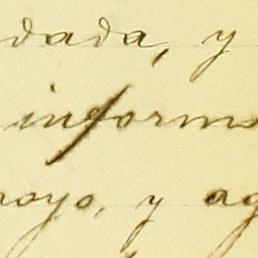 dada, y
inform
oyo, y ag